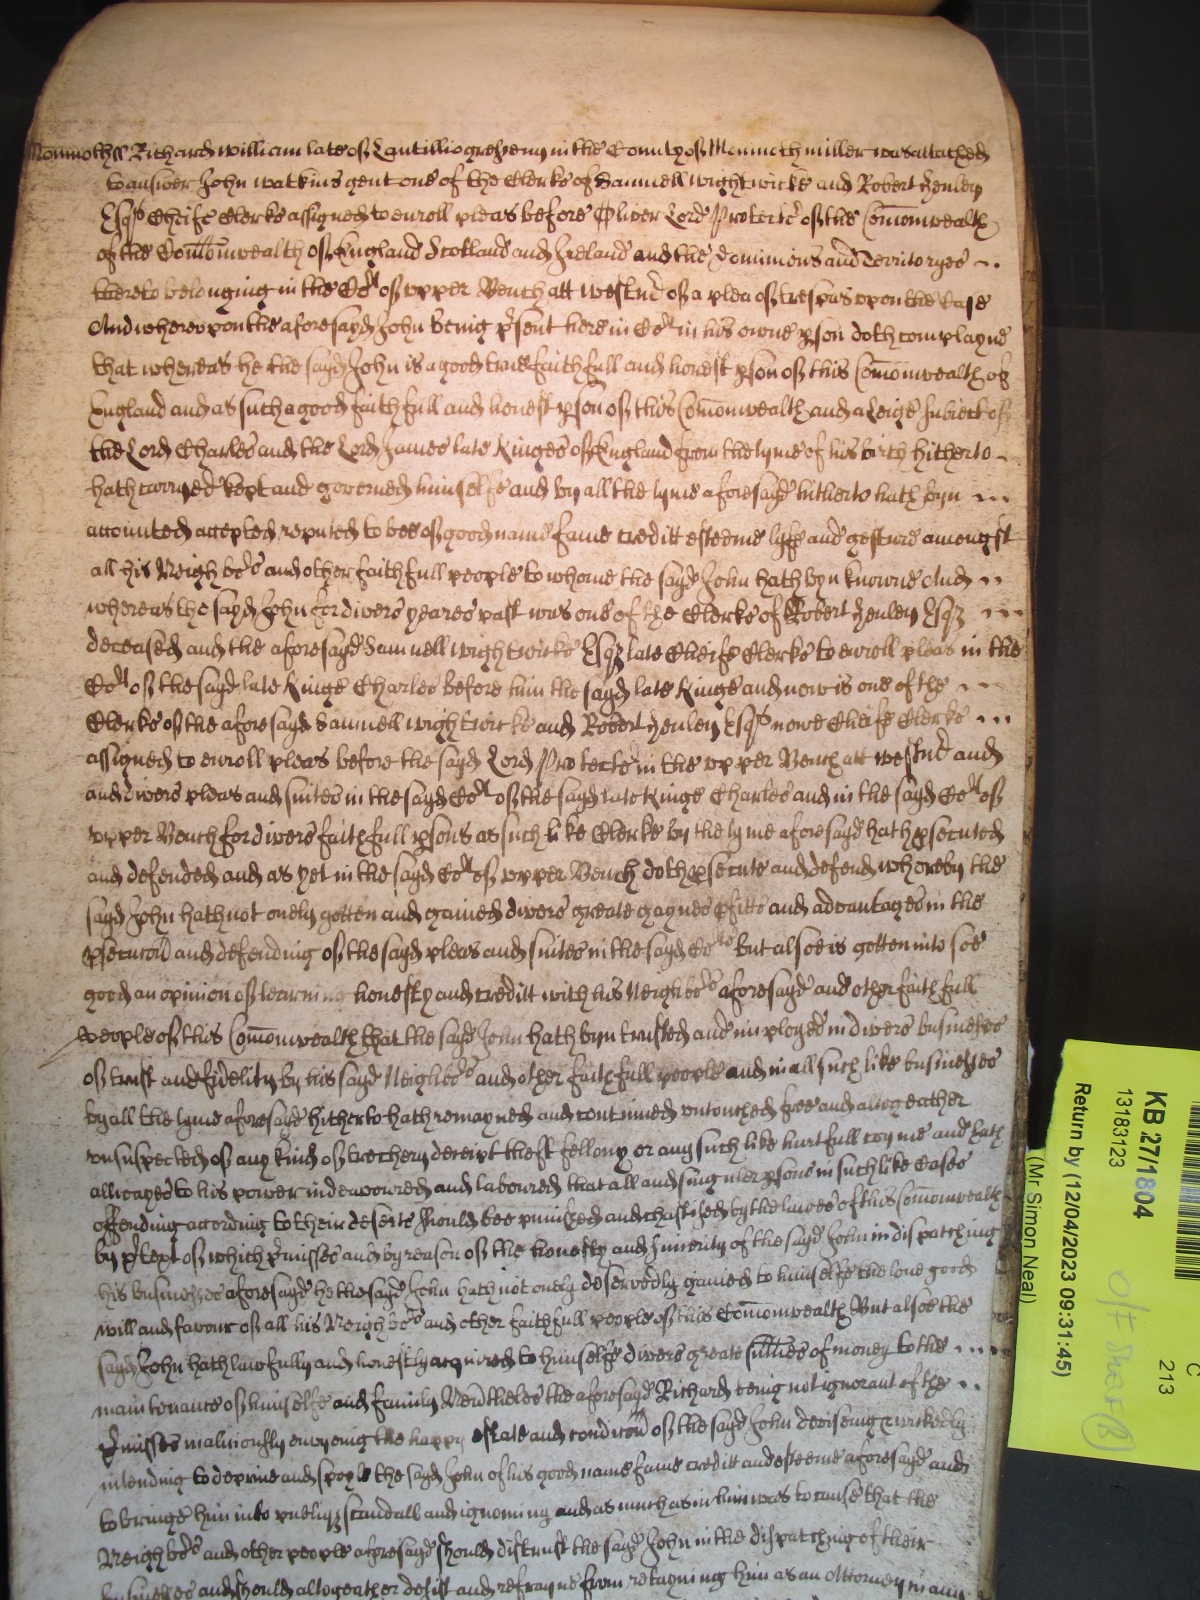 Monmoth ss Richard william late of Lantillio gresseny in the County of Monmoth miller was attached
to answer John watkins gent one of the Clerks of Samuell wightwicke and Robert Henley
Esqrs Cheife Clerks assigned to enroll pleas before Oliver Lord Protector of the Comonwealth
of the Comonwealth of England Scotland and Ireland and the Dominions and Territoryes
thereto belonging in the Cort of upper Bench att westmr of a plea of trespas upon the Case
And whereupon the aforesayd John being prsent here in Cort in his owne pson doth complayne
that whereas he the sayd John is a good true faithfull and honest pson of this Comonwealth of
England and as such a good faithfull and honest pson of this Comonwealth and a Leige Subiect of
the Lord Charles and the Lord James late Kinges of England from the tyme of his birth hitherto
hath carryed kept and governed himselfe and by all the tyme aforesayd hitherto hath byn
accounted accepted reputed to bee of good name fame creditt esteeme lyfe and gesture amongst
all his Neighbors and other faithfull people to whome the sayd John hath byn knowne And
whereas the sayd John for divers yeares past was one of the Clerks of Robert Henley Esqr
deceased and the aforesayd Samuell wightwicke Esqr late Cheife Clerks to enroll pleas in the
Cort of the sayd late Kinge Charles before him the sayd late Kinge and now is one of the
Clerks of the aforesayd Samuell wightwicke and Robert Henley Esqrs nowe Cheife Clerks
assigned to enroll pleas before the sayd Lord Protector in the upper Bench att westmr and
and divers pleas and suites in the sayd Cort of the sayd late Kinge Charles and in the sayd Cort of
upper Bench for divers faithfull psons as such like Clerke by the tyme aforesayd hath psecuted
and defended and as yet in the sayd Cort of upper Bench doth psecute and defend whereby the
sayd John hath not onely gotten and gained divers greate gaynes pfitts and advantages in the
psecucon and defending of the sayd pleas and suites in the sayd Corts but alsoe is gotten into soe
good an opinion of learning honesty and creditt with his Neighbors aforesayd and other faithfull
people of this Comonwealth that the sayd John hath byn trusted and imployed in divers busineses
of trust and fidelity by his sayd Neighbors and other faithfull people and in all such like businesses
by all the tyme aforesayd hitherto hath remayned and continued untouched free and altogeather
unsuspected of any kind of trechery deceipt theft fellony or any such like hurtfull cryme and hath
allwayes to his power indeavoured and laboured that all and singuler psons in such like Cases
offending according to their deserts should bee punished and chastized by the lawes of this Comonwealth
by prtext of which prmisses and by reason of the honesty and sincerity of the sayd John in dispatching
his businesses aforesayd he the sayd John hath not onely deservedly gained to himselfe the love good
will and favour of all his Neighbors and other faithfull people of this Comonwealth But alsoe the
sayd John hath lawfully and honestly acquired to himselfe divers greate sumes of money to the
maintenance of himselfe and family Nevrtheles the aforesayd Richard being not ignorant of the
prmisses maliciously envyeing the happy estate and condicon of the sayd John devising & wickedly
intending to deprive and spoyle the sayd John of his good name fame creditt and esteeme aforesayd and
to bringe him into publiq scandall and ignominy and as much as in him was to cause that the
Neighbors and other people aforesayd should distrust the sayd John in the dispatching of their
busineses and should altogeather desist and refrayne from retayning him as an Attorney in any
KB 27/1804
13183123
Return by (12/04/2023 09:31:45)
(Mr Simon Neal)
C
213